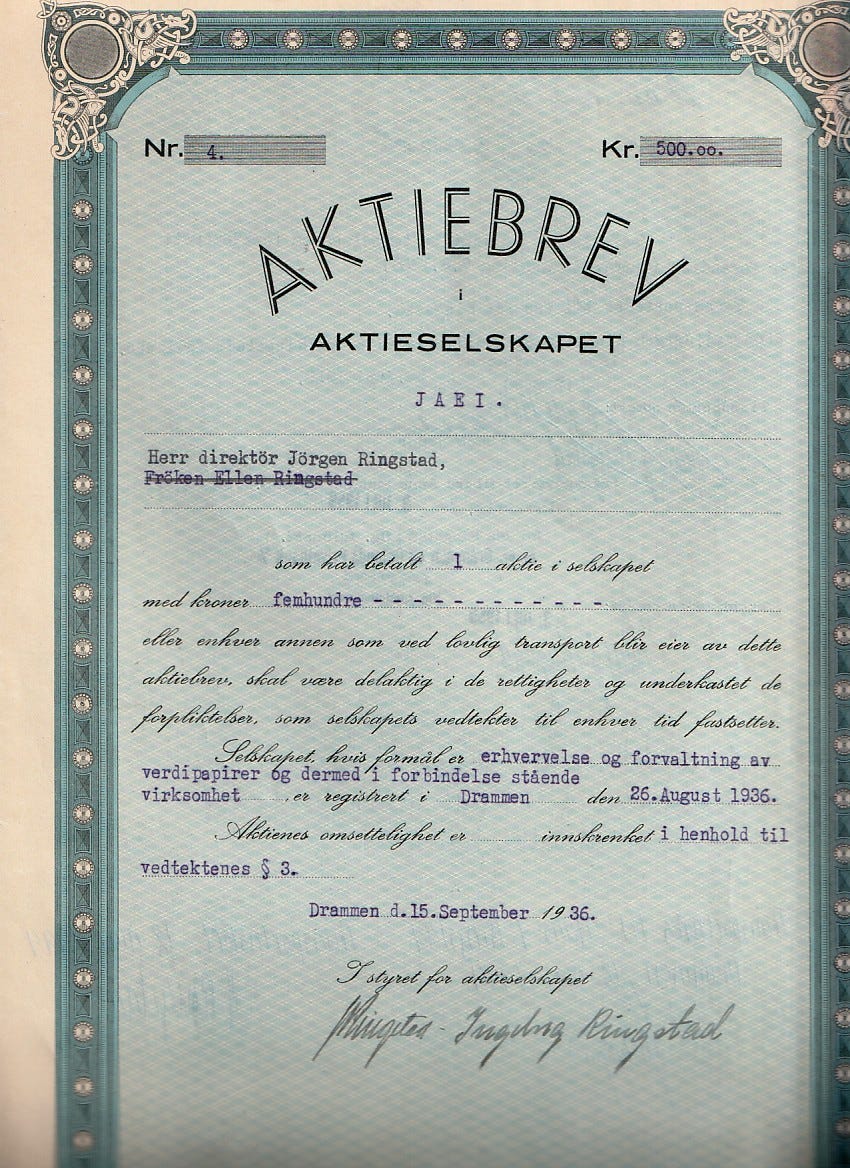 Nr. 4. Kr. 500.oo.
AKTIEBREV
i
AKTIESELSKAPET
JAEI.
Herr direktör Jörgen Ringstad,
Fröken Ellen Ringstad
som har betalt 1 aktie i selskapet
med kroner femhundre - - - - - - - - - - - -
eller enhver annen som ved lovlig transport blir eier av dette
aktiebrev, skal være delaktig i de rettigheter og underkastet de
forpliktelser, som selskapets vedtekter til enhver tid fastsetter.
Selskapet, hvis formål er erhvervelse og forvaltning av
verdipapirer og dermed i forbindelse stående
virksomhet , er registrert i Drammen den 26.August 1936.
Aktienes omsettelighet er innskrenket i henhold til
vedtektenes § 3.
Drammen d.15.September 1936.
I styret for aktieselskapet
Ingeborg Ringstad